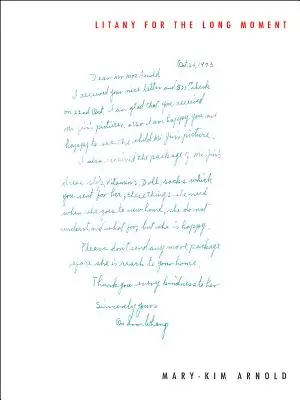 LITANY FOR THE LONG MOMENT
Oct 26, 1973
Dear Mr Mrs Arnold
I received your nice letter and check
on 22nd Oct, I am glad that you received
Mi Jin's pictures, also I am happy you are
happy to see the child Mi Jin's picture.
I also received the package of Mi Jin's
dress, slip, vitamins, Doll, socks which
you sent for her, these things she need
when she goes to new home, she do not
understand what for, but she is happy.
Please don't send any more package
before she is reach to your home.
Thank you every kindness to her
Sincerely yours
MARY-KIM ARNOLD